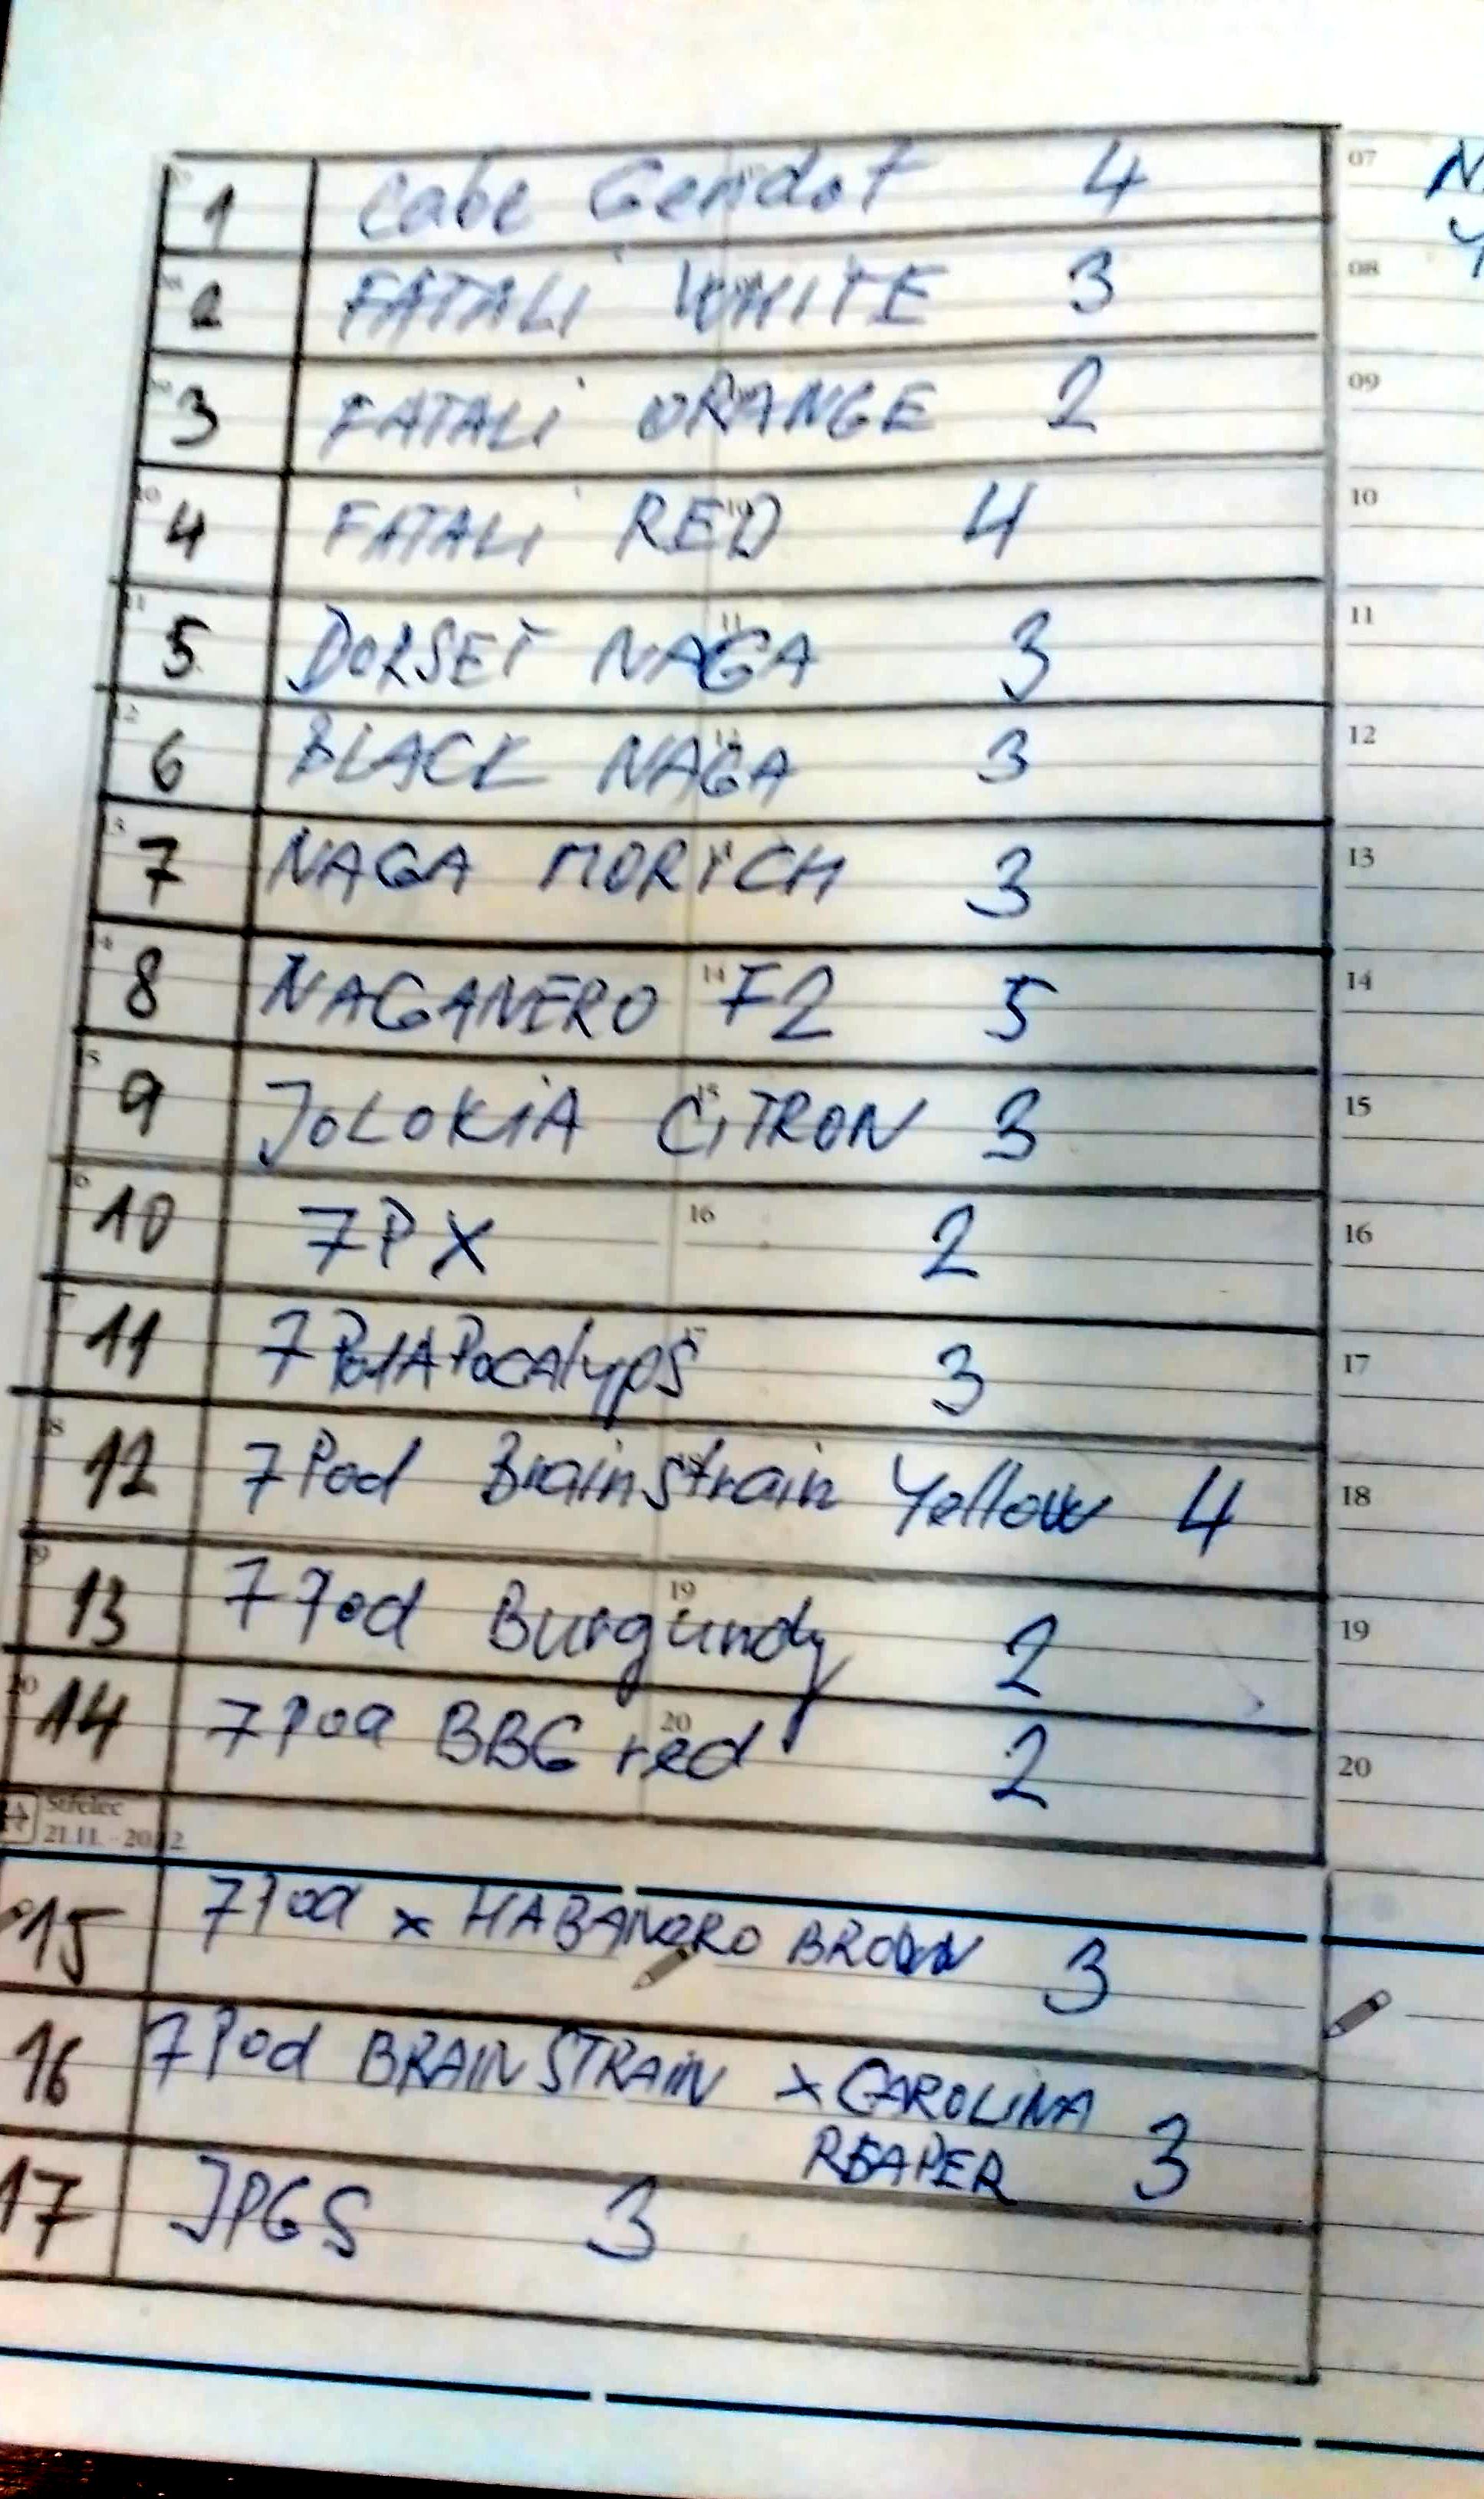 1 Cabe Gendot 4
2 FATALi WHITE 3
3 FATALi ORANGE 2
4 FATALi RED 4
5 DORSET NAGA 3
6 BLACK NAGA 3
7 NAGA MORiCH 3
8 NAGANERO F2 5
9 JOLOKiA CiTRON 3
10 7PX 2
11 7PodAPocAlypS 3
12 7Pod Brainstrain Yellow 4
13 7Pod Burgundy 2
14 7Pod BBG red 2
Střelec
21.11. - 20.12
15 7Pod x HABANERO BROWN 3
16 7Pod BRAIN STRAiN x CAROLiNA
REAPER 3
17 JPGS 3
07
08
09
10
11
12
13
14
15
16
17
18
19
20